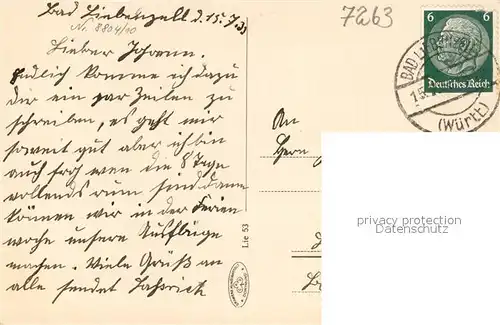 Bad Liebenzell d. 15. 7. 33
Nr. 8804/10
7263
Lieber Johann.
Endlich komme ich dazu
dir ein par Zeilen zu
schreiben, es geht mir
soweit gut aber ich bin
auch froh wen die 8 Tage
vollends rum sind dann
können wir in der Ferien
woche unsere Ausflüge
machen. Viele Grüß an
alle sendet
6 6
Deutsches Reich
BAD
15
(Württ)
An
Herrn
Lie 53
privacy protection
Datenschutz